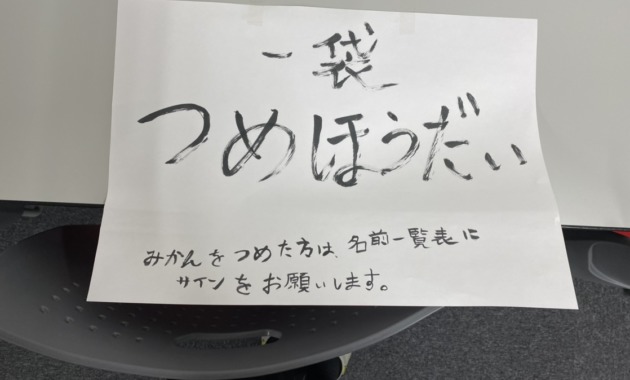 一袋
つめほうだい
みかんをつめた方は、名前一覧表に
サインをお願いします。